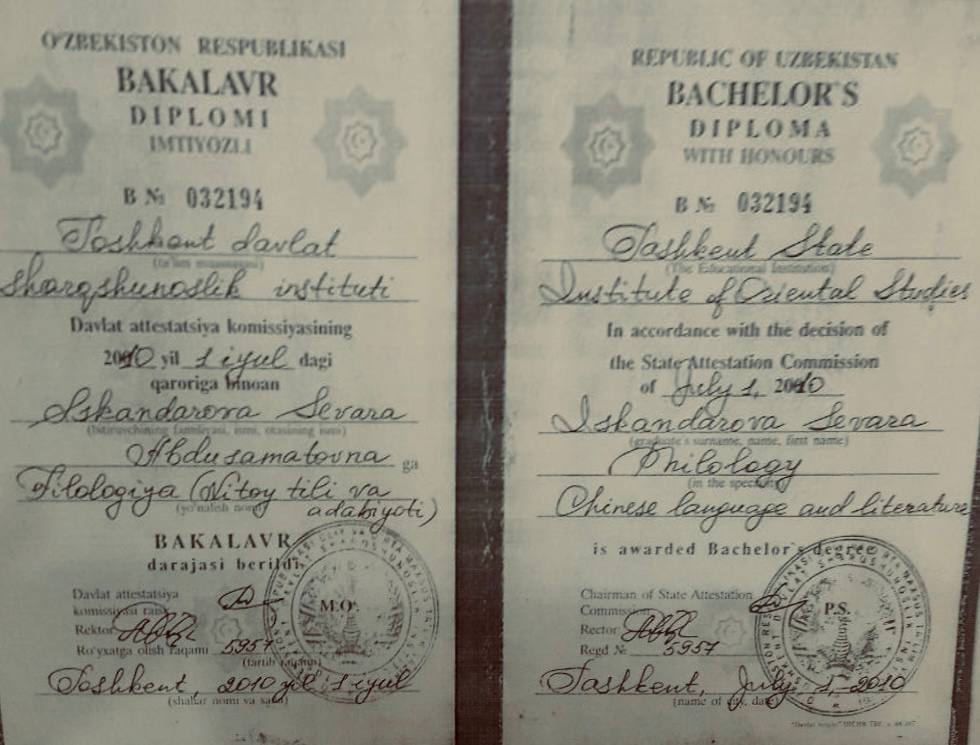 O'ZBEKISTON RESPUBLIKASI
BAKALAVR
DIPLOMI
IMTIYOZLI
B № 032194
Toshkent davlat
(ta'lim muassasasi)
sharqshunoslik instituti
Davlat attestatsiya komissiyasining
2010 yil 1 iyul dagi
qaroriga binoan
Iskandarova Sevara
(bitiruvchining familiyasi, ismi, otasining ismi)
Abdusamatovna ga
Filologiya (Xitoy tili va
(yo'nalish nomi)
adabiyoti)
BAKALAVR
darajasi berildi.
Davlat attestatsiya
komissiyasi raisi
M.O'.
Rektor
Ro'yxatga olish raqami 5957
(tartib raqami)
Toshkent, 2010 yil 1 iyul
(shahar nomi va sana)
REPUBLIC OF UZBEKISTAN
BACHELOR'S
DIPLOMA
WITH HONOURS
B № 032194
Tashkent State
(The Educational Institution)
Institute of Oriental Studies
In accordance with the decision of
the State Attestation Commission
of July 1, 2010
Iskandarova Sevara
(graduate's surname, name, first name)
Philology
(in the speciality)
Chinese language and literature
is awarded Bachelor's degree
Chairman of State Attestation
Commission
P.S.
Rector
Regd № 5957
Tashkent, July, 1, - 2010
(name of city, date)